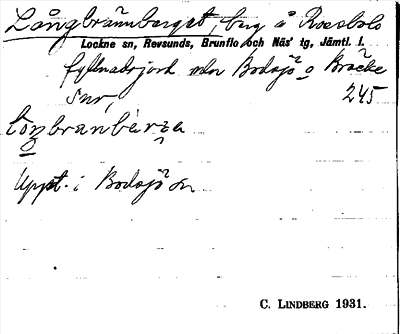 Långbrännberget, berg å Rossbols
Lockne sn, Revsunds, Brunflo och Näs' tg, Jämtl. l.
fyllnadsjord mlan Bodsjö o Bräcke
snr, 245
Uppt. i Bodsjö sn
C. LINDBERG 1931.